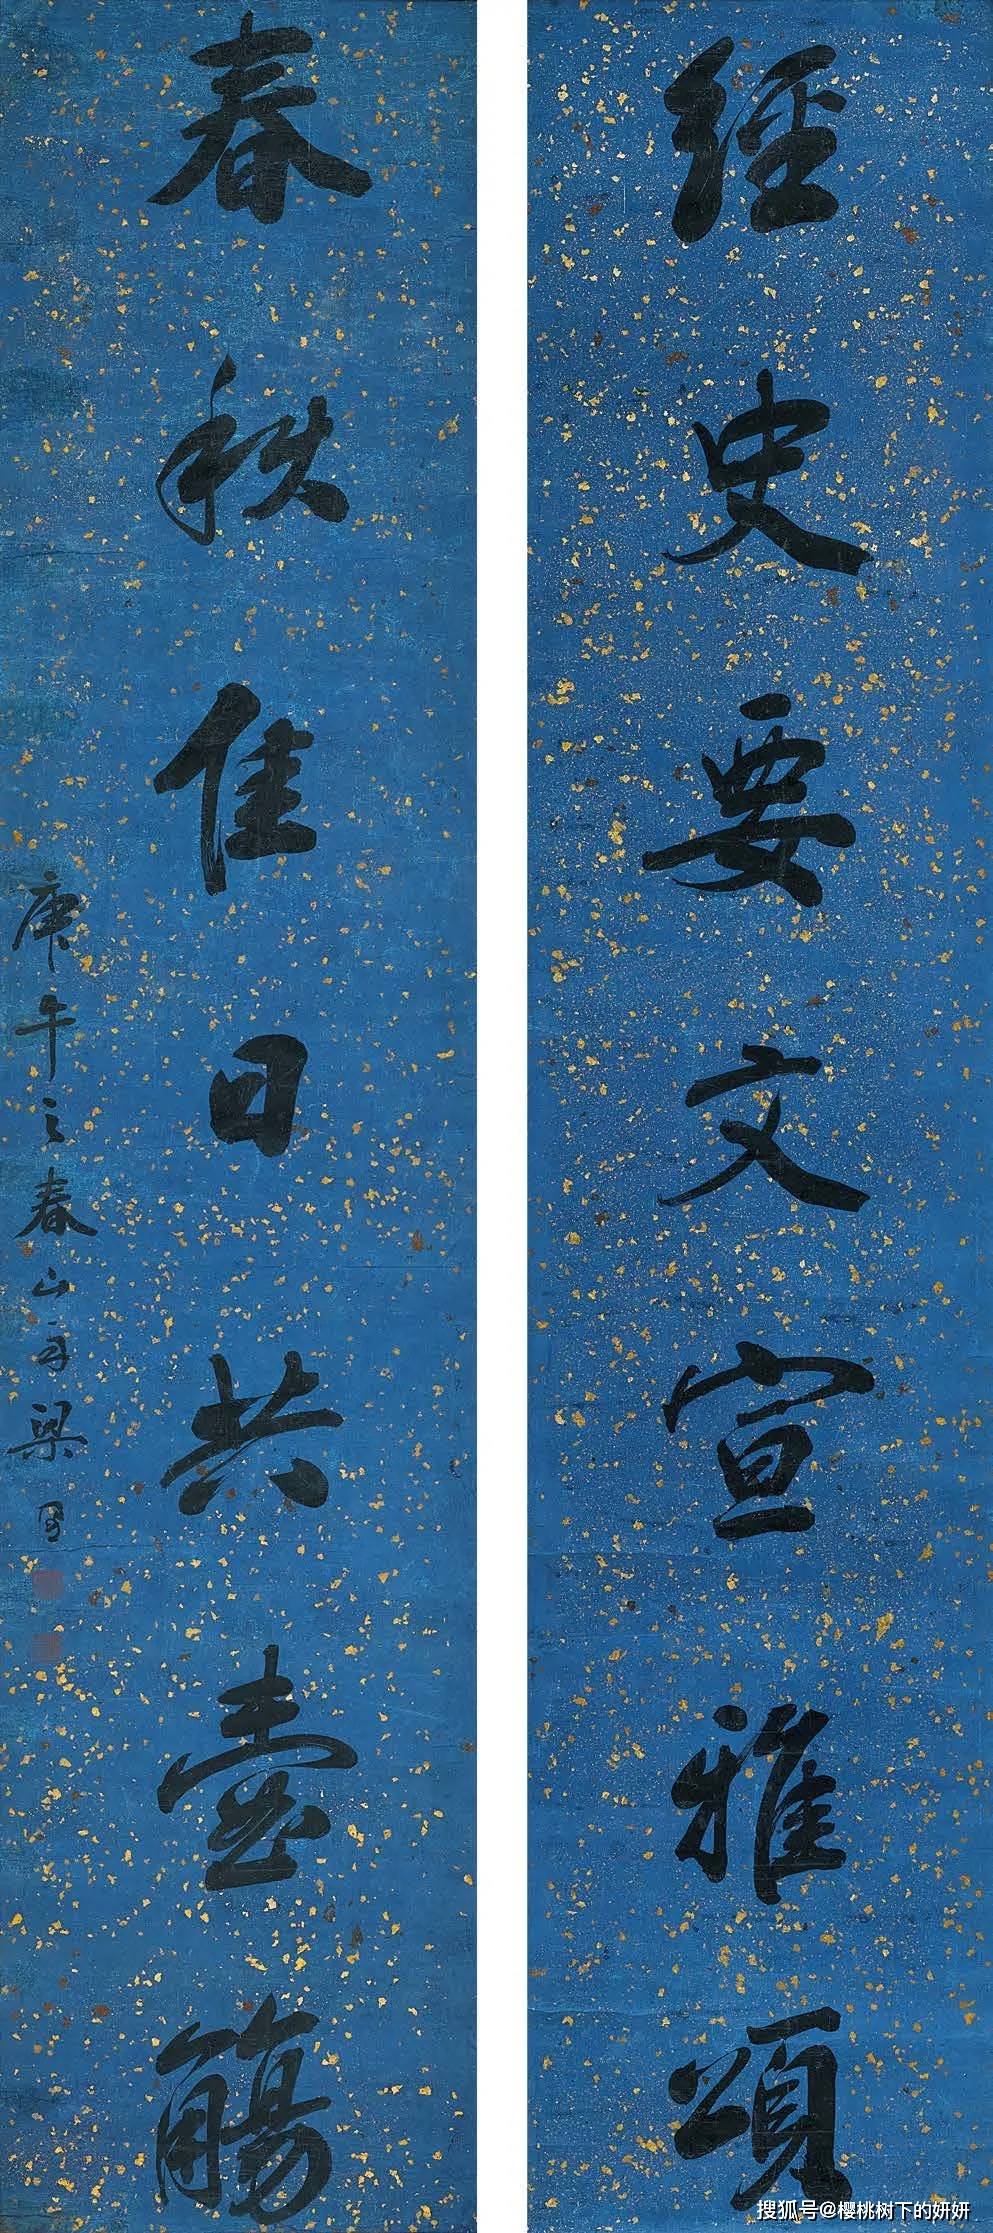 經史要文宣雅頌
春秋佳日共壺觴
庚午之春山舟梁同
搜狐号@樱桃树下的妍妍